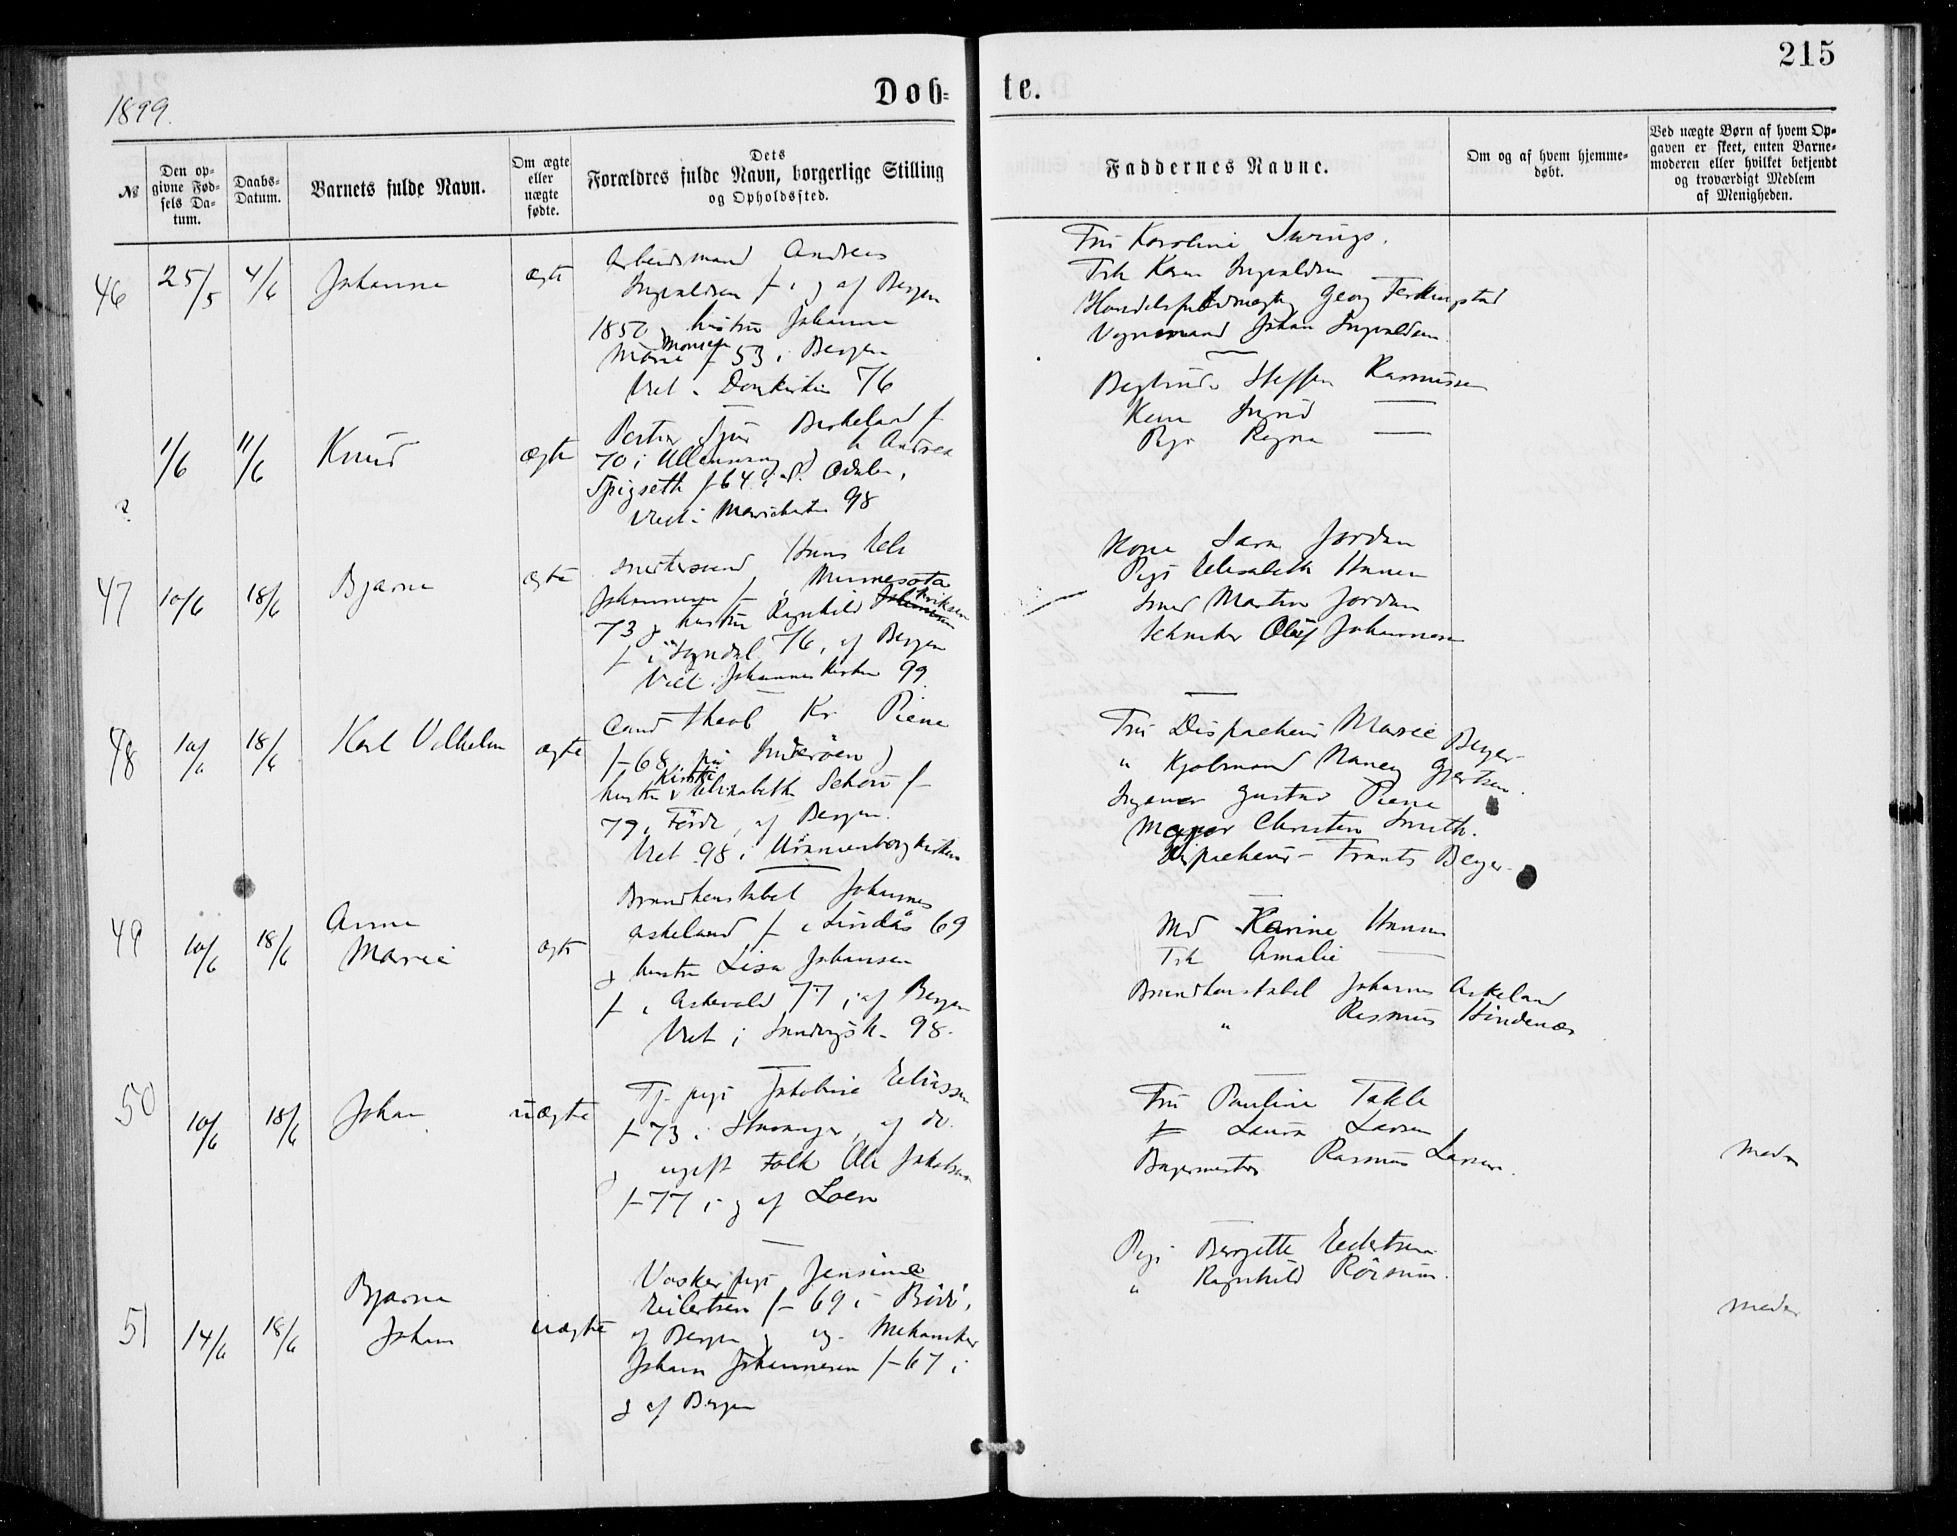 215
1899.
Døb=
te.
№
Den op-
givne Fød-
sels Da-
tum.
Daabs-
Datum.
Barnets fulde Navn.
Om ægte
eller
uægte
fødte.
Dets
Forældres fulde Navn, borgerlige Stilling
og Opholdssted.
Faddernes Navne.
Om og af hvem hjemme-
døbt.
Ved uægte Børn af hvem Op-
gaven er skeet, enten Barne-
moderen eller hvilket bekjendt
og troværdigt Medlem
af Menigheden.
46
25/5
4/6
Johanna
ægte
Arbeidsmand Andreas
Ingvaldsen f. i g af Bergen
1850 g hustru Johanna
Marie Monsen f 53 i Bergen
Viet i Domkirken 76
Fru Karoline
Frk Karen Ingvaldsen
Georg Ferkingstad
Vognmand Johan Ingvaldsen
1/6
11/6
Knud
ægte
Portier Birkeland f
70 i Ullensvang g h Andrea
Spigseth f 64 i S. Odalen,
Viet i Mariakirken 98
Steffen Rasmussen
Kone Ingrid —
Pige Ragna —
47
10/6
18/6
Bjarne
ægte
Hans
Johannesen f i Minnesota
73 g hustru Ragnhild Eriksen
f i Sogndal 76, af Bergen
Viet i Johanneskirken 99
Kone Sara Jordan
Pige Elisabeth Hansen
Smed Martin Jordan
Olaf Johannesen
48
10/6
18/6
Karl Vilhelm
ægte
Cand theol Kr Piene
f 68 på Inderøen g
hustru Kirsti Elisabeth Schou f
79 i Førde, af Bergen.
Viet 98 i Uranienborgkirken
Fru Dispacheur Marie Beyer
" Kjøbmand Nancy Gjertsen.
Ingeniør Gustav Piene
Major Christen Smith.
Dispacheur Frants Beyer.
49
10/6
18/6
Anna
Marie
ægte
Brandkonstabel Johannes
Askeland f i Lindås 69
g hustru Lisa Johansen
f i Askevold 77, af Bergen
Viet i Sandvigsk. 98.
Md Karine Hansen
Frk Amalie —
Brandkonstabel Johannes Askeland
" Rasmus Hindenæs
50
10/6
18/6
Johan
uægte
Tj. pige Jakobine Eliassen
f 73 i Stavanger, af do.
g ugift Ole Jakobsen
f 77 i g af Loen
Fru Pauline Takle
Laura Larsen
Bagermester Rasmus Larsen.
Moder
51
14/6
18/6
Bjarne
Johan
uægte
Vaskerpige Jensine
Eilertsen f 69 i Bodø,
af Bergen g ug. Mekaniker
Johan Johannesen f 67 i
g af Bergen
Pige Bergitte Eilertsen
" Ragnhild
Moder